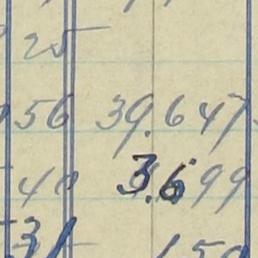 25
56 39.647
40 3.699
31 150